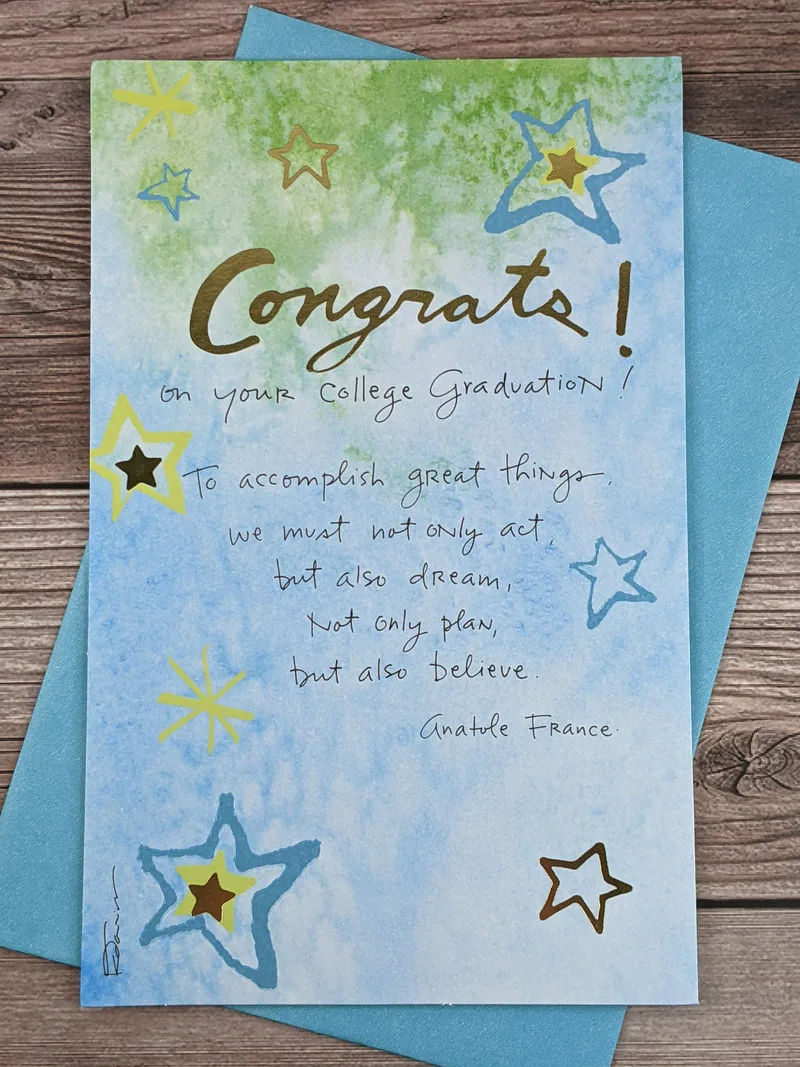 Congrats!
on your College Graduation!
To accomplish great things,
we must not only act,
but also dream,
Not only plan,
but also believe.
Anatole France.